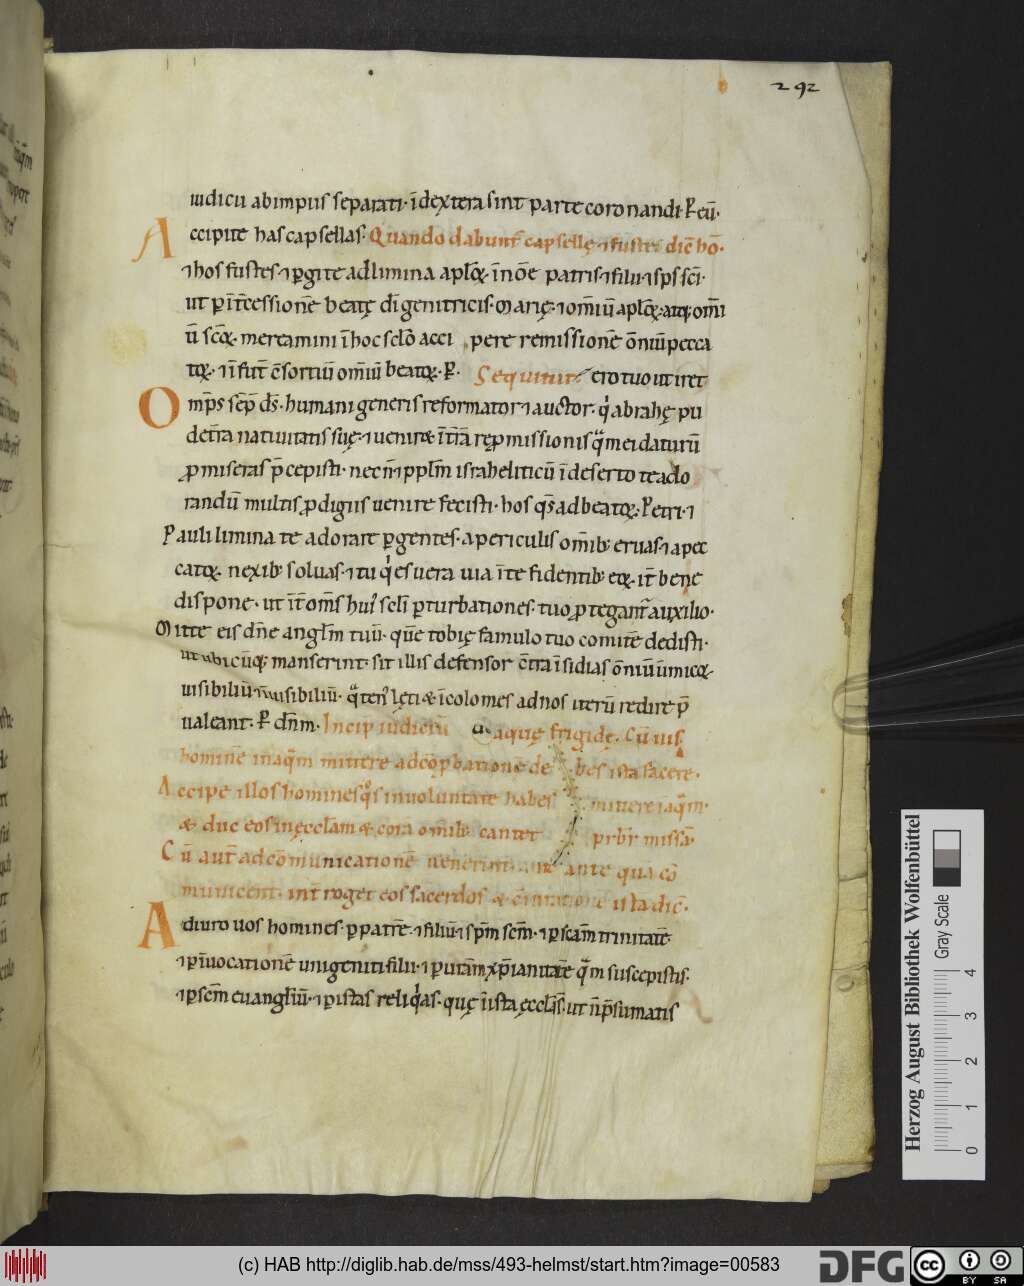 292
iudicii ab impiis separati· īdextera sint parte coronandi· P̄ eū·
Accipite has capsellas· Quando dabunt̄ capsellę ⁊ fustes dic̄ hō·
⁊ hos fustes· ⁊ ꝑgite ad limina apl̄oꝝ· īnōe patris· ⁊ filii· ⁊ sp̄s sc̄i·
ut ꝑ īt̄cessionē beatę dī genitricis· Marię· ⁊ om̄iū apl̄oꝝ· atq; om̄i
ū sc̄oꝝ· mereamini ī hoc sclō acci pere remissionē ōniū pecca
toꝝ· ⁊ ī fut̄ c̄sortiū om̄iū beatoꝝ· P̄· Sequitur ero tuo ut iret
Omp̄s sēp̄ ds̄· humani generis reformator ⁊ auctor· qi abrahę pu
det̄ra natiuitatis suę· ⁊ uenire ī t̄rā rep̱missionis qͣ mei daturū
ꝓmiseras p̄cepisti· necn̄ ppl̄m israheliticū ī deserto te ado
randū multis ꝓdigiis uenire fecisti· hos qs̄ ad beatoꝝ· Petri· ⁊
Pauli limina te adorare ꝑgentes· a periculis om̄ib; eruas· ⁊ a pec
catoꝝ· nexib; soluas· ⁊ tu qi es uera uia īte fidentib; eoꝝ· it̄ bene
dispone· ut īt̄ om̄s hui⁹ sclī ꝑturbationes· tuo ꝓtegant̄ auxilio·
Mitte eis dn̄e angl̄m tuū· quē tobię famulo tuo comitē dedisti·
ut ubicūq; manserint· sit illis defensor c̄tra īsidias ōniū inimicoꝝ·
uisibiliū· īuisibiliū· qͣten⁹ lęti & īcolomes ad nos iterū redire p̄
ualeant· P̄ dn̄m· Incip̄ iudiciū aquę frigidę· Cū uis
hominē in aqͣm mittere ad cōꝓbationē de bes ista facere·
Accipe illos homines qͦs in uoluntate habes mittere ī aqͣm·
& duc eos in ęccl̄am & corā om̄ib; cantet pr̄br̄ missā·
Cū aut̄ ad cōmunicationē uenerint· ante quā cō
municent· int̄roget eos sacerdos & c̄iuratione ista dic̄·
Adiuro uos homines· ꝑ patrē· ⁊ filiū· ⁊ sp̄m sc̄m· ⁊ ꝑ sc̄am trinitatē
⁊ ꝑ īuocationē unigeniti filii· ⁊ ꝑ utām xp̄ianitatē qͣm suscepistis·
⁊ ꝑ sc̄m euangl̄iū· ⁊ ꝑ istas reliqi̇as· quę ī ista ęccl̄a s̄· ut n̄ p̄sumatis
Herzog August Bibliothek Wolfenbüttel
Gray Scale
0 1 2 3 4
(c) HAB http://diglib.hab.de/mss/493-helmst/start.htm?image=00583
DFG
cc BY SA